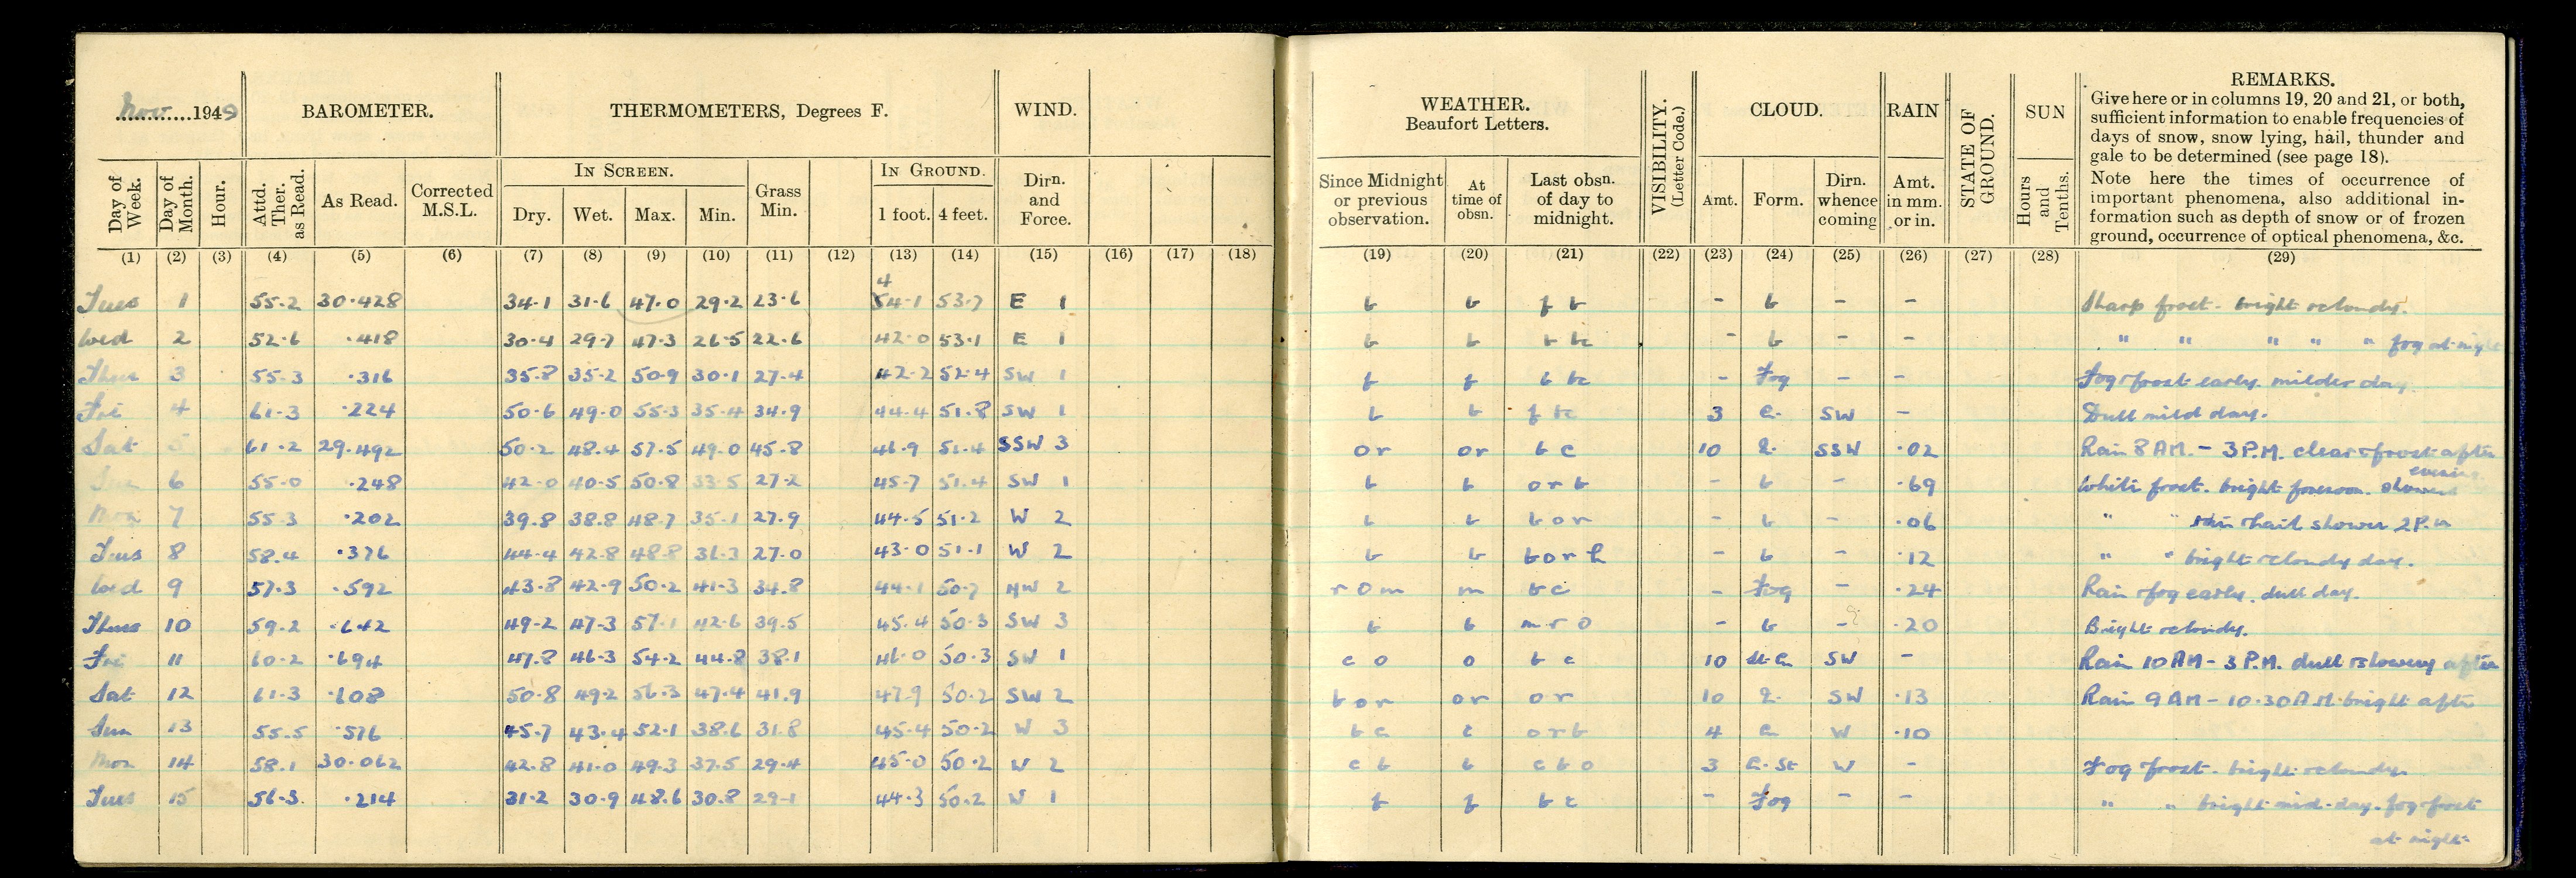 Nov 1949 BAROMETER. THERMOMETERS, Degrees F. WIND. WEATHER. Beaufort Letters. VISIBILITY. (Letter Code.) CLOUD. RAIN STATE OF GROUND. SUN REMARKS.
Give here or in columns 19, 20 and 21, or both,
sufficient information to enable frequencies of
days of snow, snow lying, hail, thunder and
gale to be determined (see page 18).
Note here the times of occurrence of
important phenomena, also additional in-
formation such as depth of snow or of frozen
ground, occurrence of optical phenomena, &c.
Day of Week. Day of Month. Hour. Attd. Ther. as Read. As Read. Corrected M.S.L. IN SCREEN. Dry. Wet. Max. Min. Grass Min. IN GROUND. 1 foot. 4 feet. Dirn. and Force. Since Midnight or previous observation. At time of obsn. Last obsn. of day to midnight. Amt. Form. Dirn. whence coming Amt. in mm. or in. Hours and Tenths.
(1) (2) (3) (4) (5) (6) (7) (8) (9) (10) (11) (12) (13) (14) (15) (16) (17) (18) (19) (20) (21) (22) (23) (24) (25) (26) (27) (28) (29)
4
Tues 1 55.2 30.428 34.1 31.6 47.0 29.2 23.6 54.1 53.7 E 1 b b f b - b - - Sharp frost. bright & cloudy.
Wed 2 52.6 .418 30.4 29.7 47.3 26.5 22.6 42.0 53.1 E 1 b b b bc - b - - " " " " " fog at night
Thur 3 55.3 .316 35.8 35.2 50.9 30.1 27.4 42.2 52.4 SW 1 f f b bc - Fog - - Fog & frost early. milder day.
Fri 4 61.3 .224 50.6 49.0 55.3 35.4 34.9 44.4 51.8 SW 1 b b f bc 3 SW - Dull mild day.
Sat 5 61.2 29.492 50.2 48.4 57.5 49.0 45.8 46.9 51.4 SSW 3 or or b c 10 SSW .02 Rain 8 AM. - 3 P.M. clear & frost after
evening
Sun 6 55.0 .248 42.0 40.5 50.8 33.5 27.2 45.7 51.4 SW 1 b b o r b - b - .69 White frost. bright forenoon. showers
Mon 7 55.3 .202 39.8 38.8 48.7 35.1 27.9 44.5 51.2 W 2 b b b o r - b - .06 " " rain & hail shower 2 P.m
Tues 8 58.4 .376 44.4 42.8 48.8 36.3 27.0 43.0 51.1 W 2 b b b o r h - b - .12 " " bright & cloudy day.
Wed 9 57.3 .592 43.8 42.9 50.2 41.3 34.8 44.1 50.7 NW 2 r o m m b c - Fog - .24 Rain & fog early. dull day.
Thurs 10 59.2 .642 49.2 47.3 57.1 42.6 39.5 45.4 50.3 SW 3 b b m r o - b - .20 Bright & cloudy.
Fri 11 60.2 .694 47.8 46.3 54.2 44.8 38.1 46.0 50.3 SW 1 c o o b c 10 SW - Rain 10 AM - 3 P.M. dull & showery after
Sat 12 61.3 .608 50.8 49.2 56.3 47.4 41.9 47.9 50.2 SW 2 b o r or or 10 SW .13 Rain 9 AM - 10.30 A.M. bright after
Sun 13 55.5 .576 45.7 43.4 52.1 38.6 31.8 45.4 50.2 W 3 b c c o r b 4 W .10
Mon 14 58.1 30.062 42.8 41.0 49.3 37.5 29.4 45.0 50.2 W 2 c b b c b o 3 W - Fog & frost. bright & cloudy.
Tues 15 56.3 .214 31.2 30.9 48.6 30.8 29.1 44.3 50.2 W 1 f f b c - Fog - - " " bright mid-day. fog & frost
at night.